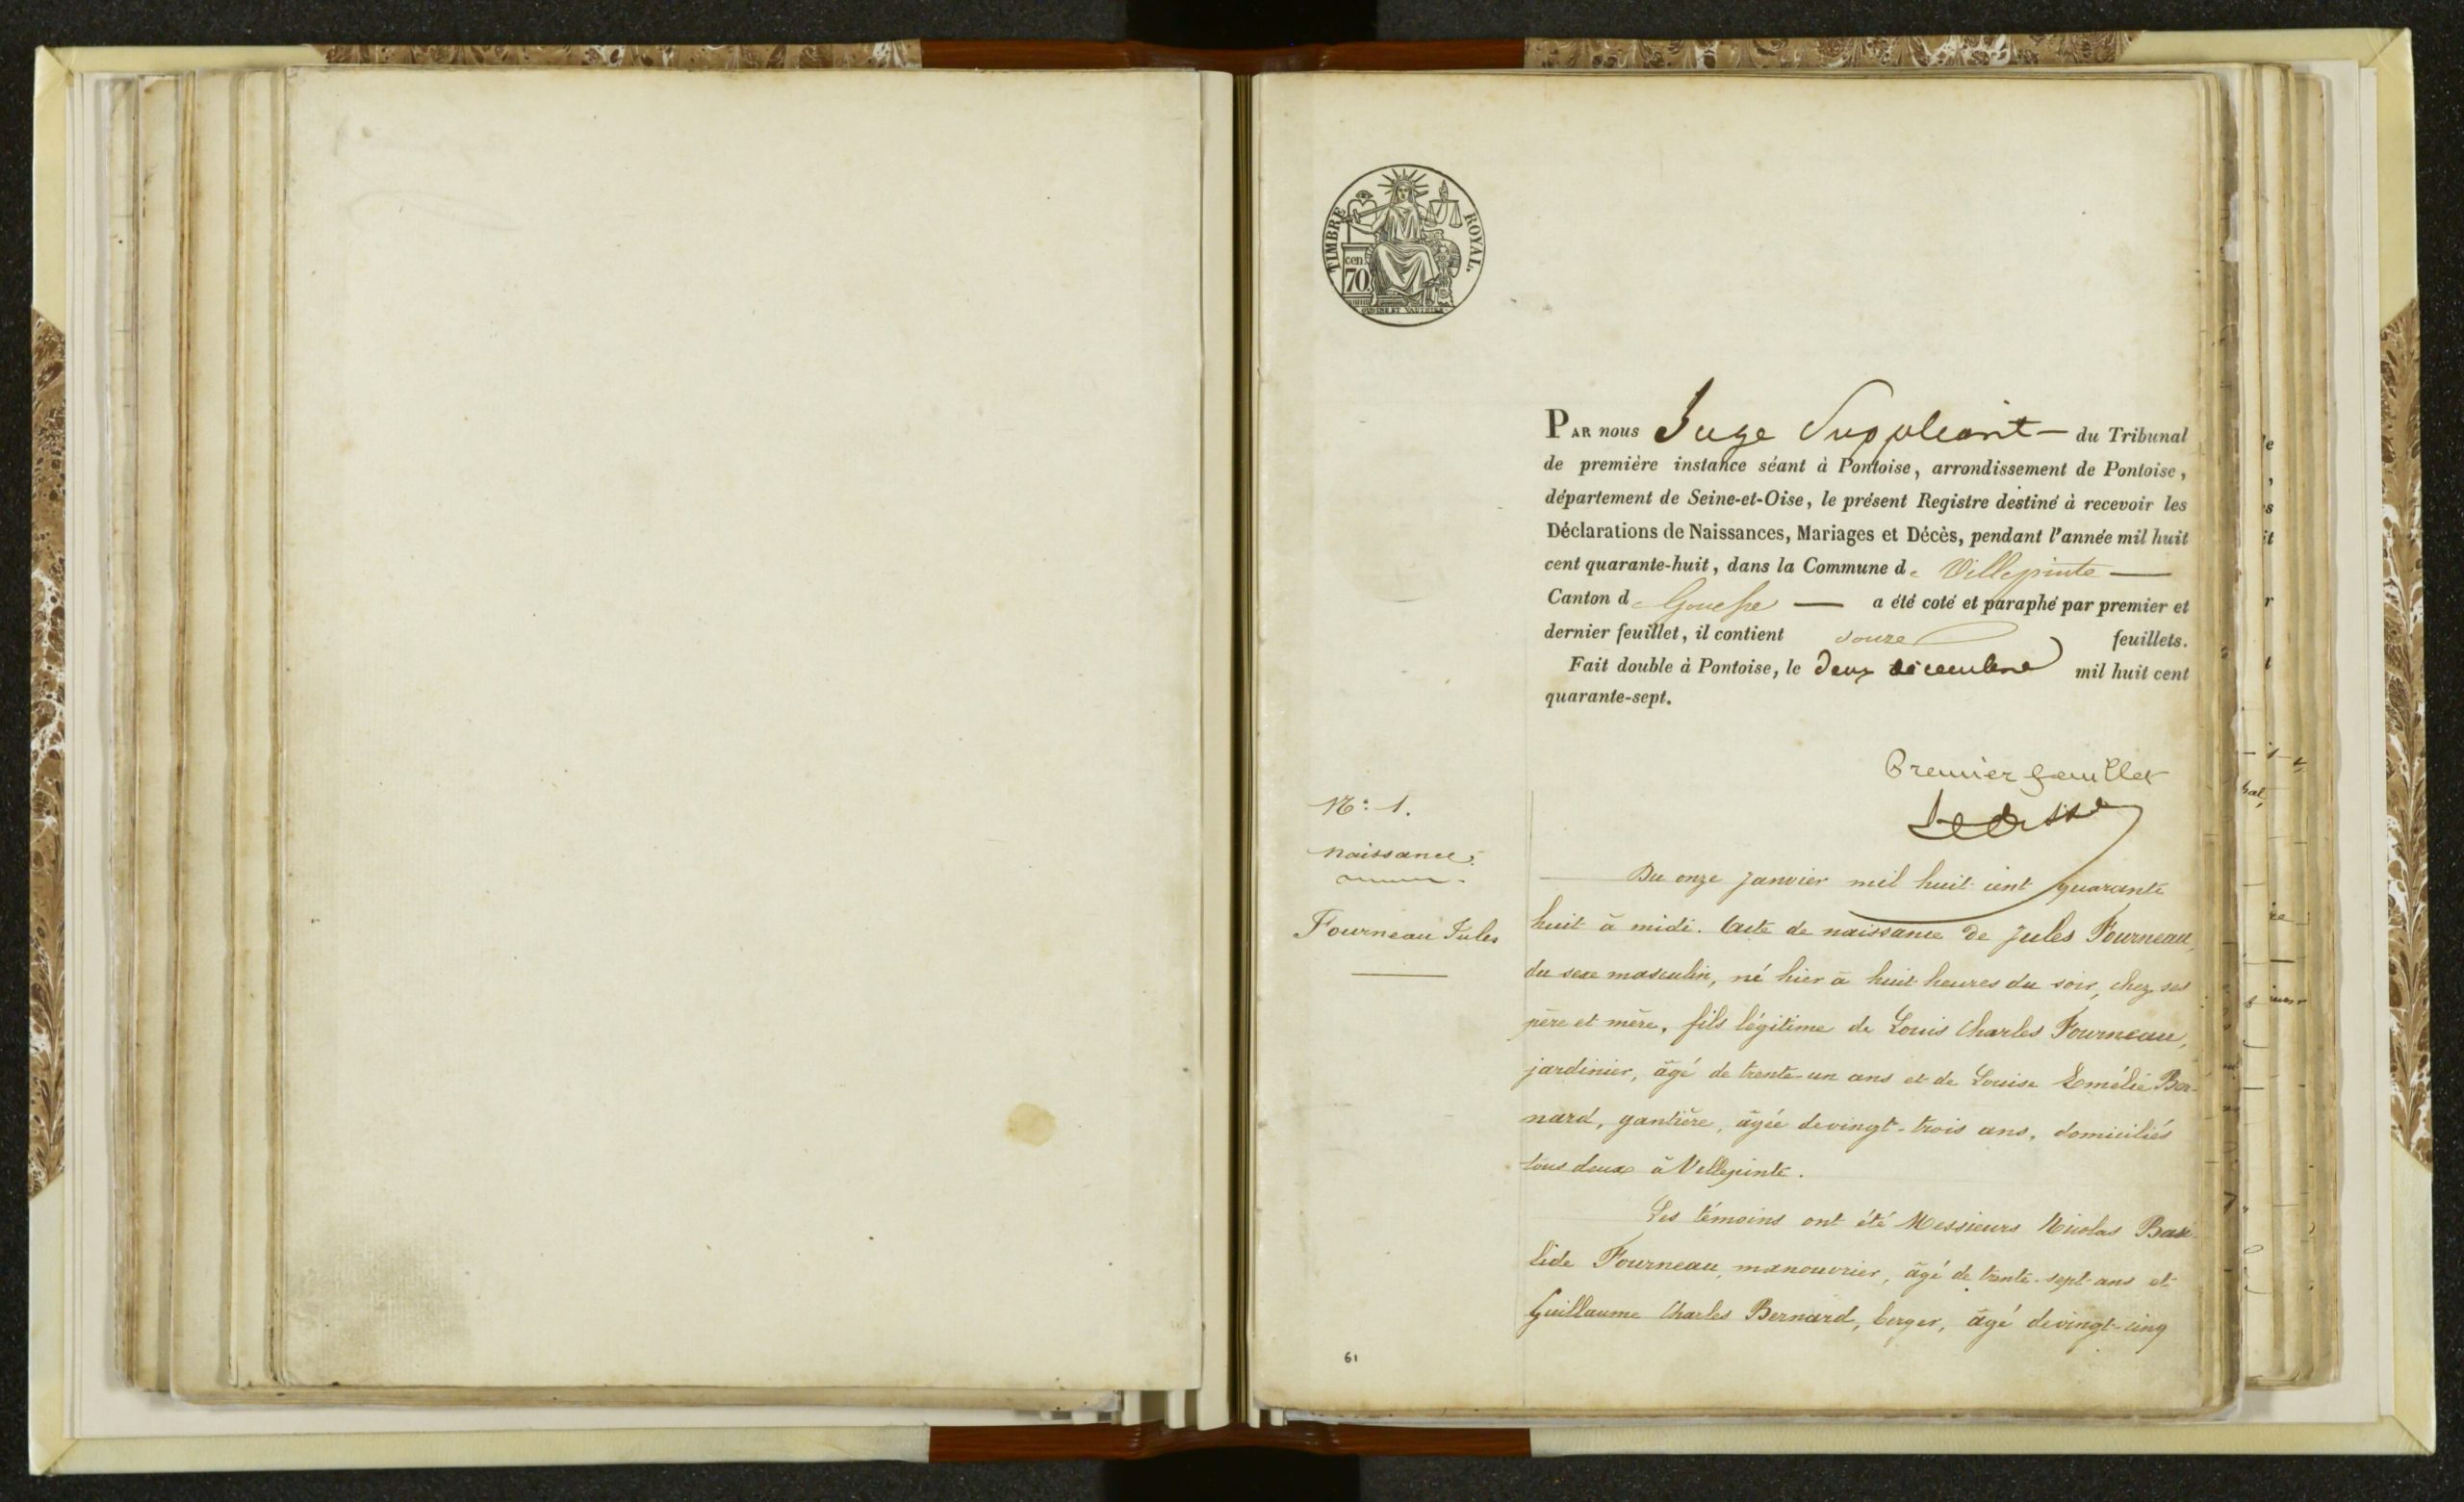 TIMBRE ROYAL.
cen
70.
PAR nous Juge Suppléant — du Tribunal
de première instance séant à Pontoise, arrondissement de Pontoise,
département de Seine-et-Oise, le présent Registre destiné à recevoir les
Déclarations de Naissances, Mariages et Décès, pendant l'année mil huit
cent quarante-huit, dans la Commune de Villepinte —
Canton de Gonesse — a été coté et paraphé par premier et
dernier feuillet, il contient douze feuillets.
Fait double à Pontoise, le deux décembre mil huit cent
quarante-sept.
Premier feuillet
N°: 1.
Naissance.
Fourneau Jules
Du onze janvier mil huit cent quarante
huit à midi. Acte de naissance de Jules Fourneau,
du sexe masculin, né hier à huit heures du soir, chez ses
père et mère, fils légitime de Louis Charles Fourneau,
jardinier, âgé de trente-un ans et de Louise Esmélie Ber-
nard, gantière, âgée de vingt-trois ans, domiciliés
tous deux à Villepinte.
Les témoins ont été Messieurs Nicolas Basi-
lide Fourneau, manouvrier, âgé de trente-sept ans et
Guillaume Charles Bernard, berger, âgé de vingt-cinq
61